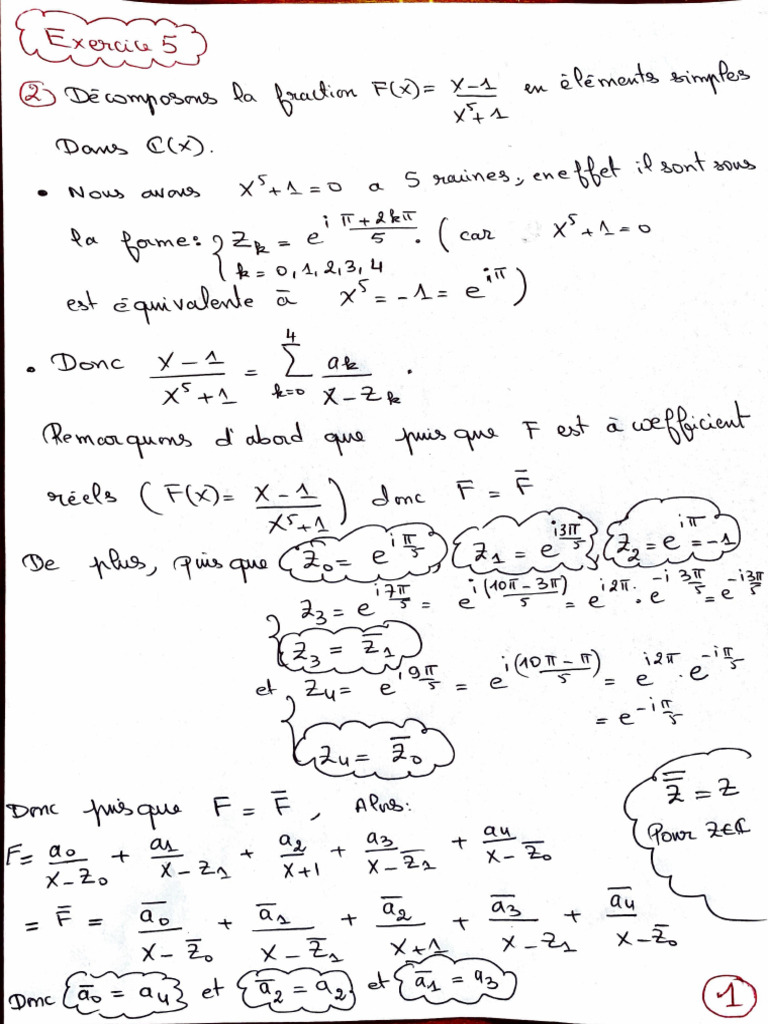 Exercice 5
② Décomposons la fraction F(x) = \frac{x-1}{x^5+1} en éléments simples
Dans ℂ(x).
• Nous avons x^5+1=0 a 5 raines, en effet il sont sous
la forme: { z_k = e^{i \frac{π+2kπ}{5}}. (car x^5+1=0
k = 0,1,2,3,4
est équivalente à x^5 = -1 = e^{iπ})
• Donc \frac{x-1}{x^5+1} = \sum_{k=0}^{4} \frac{a_k}{x-z_k}.
Remarquons d'abord que puis que F est à coefficient
réels (F(x) = \frac{x-1}{x^5+1}) donc F = \bar{F}
De plus, puis que z_0 = e^{i\frac{π}{5}}, z_1 = e^{i\frac{3π}{5}}, z_2 = e^{iπ} = -1
z_3 = e^{i\frac{7π}{5}} = e^{i\frac{(10π-3π)}{5}} = e^{i2π} . e^{-i\frac{3π}{5}} = e^{-i\frac{3π}{5}}
z_3 = \bar{z}_1
et z_4 = e^{i\frac{9π}{5}} = e^{i\frac{(10π-π)}{5}} = e^{i2π} . e^{-i\frac{π}{5}}
= e^{-i\frac{π}{5}}
z_4 = \bar{z}_0
Donc puisque F = \bar{F}, Alors:
\bar{\bar{z}} = z
Pour z∈ℂ
F = \frac{a_0}{x-z_0} + \frac{a_1}{x-z_1} + \frac{a_2}{x+1} + \frac{a_3}{x-\bar{z}_1} + \frac{a_4}{x-\bar{z}_0}
= \bar{F} = \frac{\bar{a}_0}{x-\bar{z}_0} + \frac{\bar{a}_1}{x-\bar{z}_1} + \frac{\bar{a}_2}{x+1} + \frac{\bar{a}_3}{x-z_1} + \frac{\bar{a}_4}{x-\bar{z}_0}
Donc \bar{a}_0 = a_4 et \bar{a}_2 = a_2 et \bar{a}_1 = a_3
1